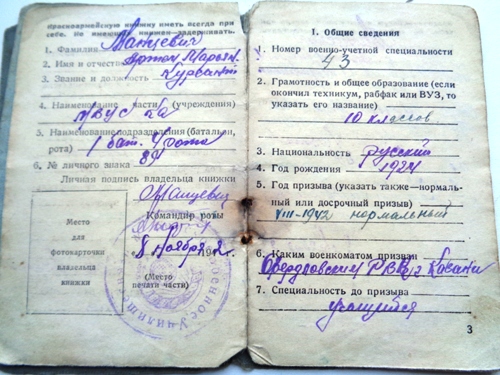 Красноармейскую книжку иметь всегда при
себе. Не имеющих книжек—задерживать.
1. Фамилия Мацкевич
2. Имя и отчество Антон Марьян.
3. Звание и должность Курсант
4. Наименование части (учреждения)
5. Наименование подразделения (батальон,
рота) 1 бат. 4 рота
6. № личного знака
Личная подпись владельца книжки
Командир роты
8 ноября 1942г.
Место
для
фотокарточки
владельца
книжки
(Место
печати части)
1. Общие сведения
1. Номер военно-учетной специальности
43
2. Грамотность и общее образование (если
окончил техникум, рабфак или ВУЗ, то
указать его название)
10 классов
3. Национальность русский
4. Год рождения 1924
5. Год призыва (указать также—нормаль-
ный или досрочный призыв)
VIII-1942 нормальный
6. Каким военкоматом призван
Свердловским РВК г Казани
7. Специальность до призыва
учащийся
3